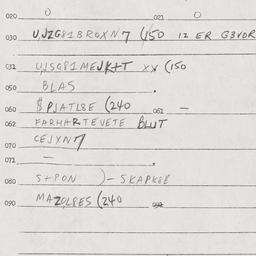 020 0 021 0
030 U,JZG81BROXN7 (150 12 ER G3VOR
031 U,SG81MEJK+T XX (150
050 BLAS
060 $PJATL8E (240 061 —
062 FARHARTEVETE BLUT
070 CEJXN7
071 —
080 S+PON )- SKAPK8E
090 MAZOL8ES (240